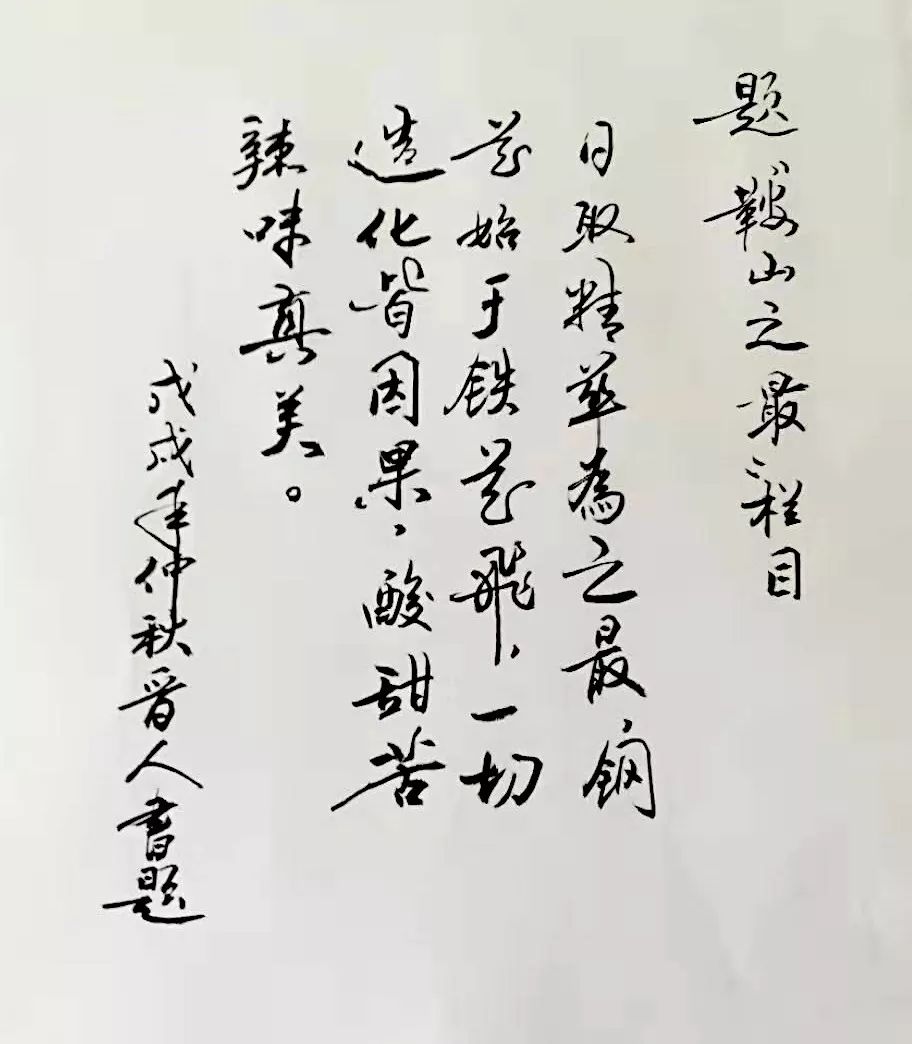 题“鞍山之最”栏目
日取精萃为之最,钢
花始于铁花飞,一切
造化皆因果,酸甜苦
辣味真美。
戊戌年仲秋晋人書题